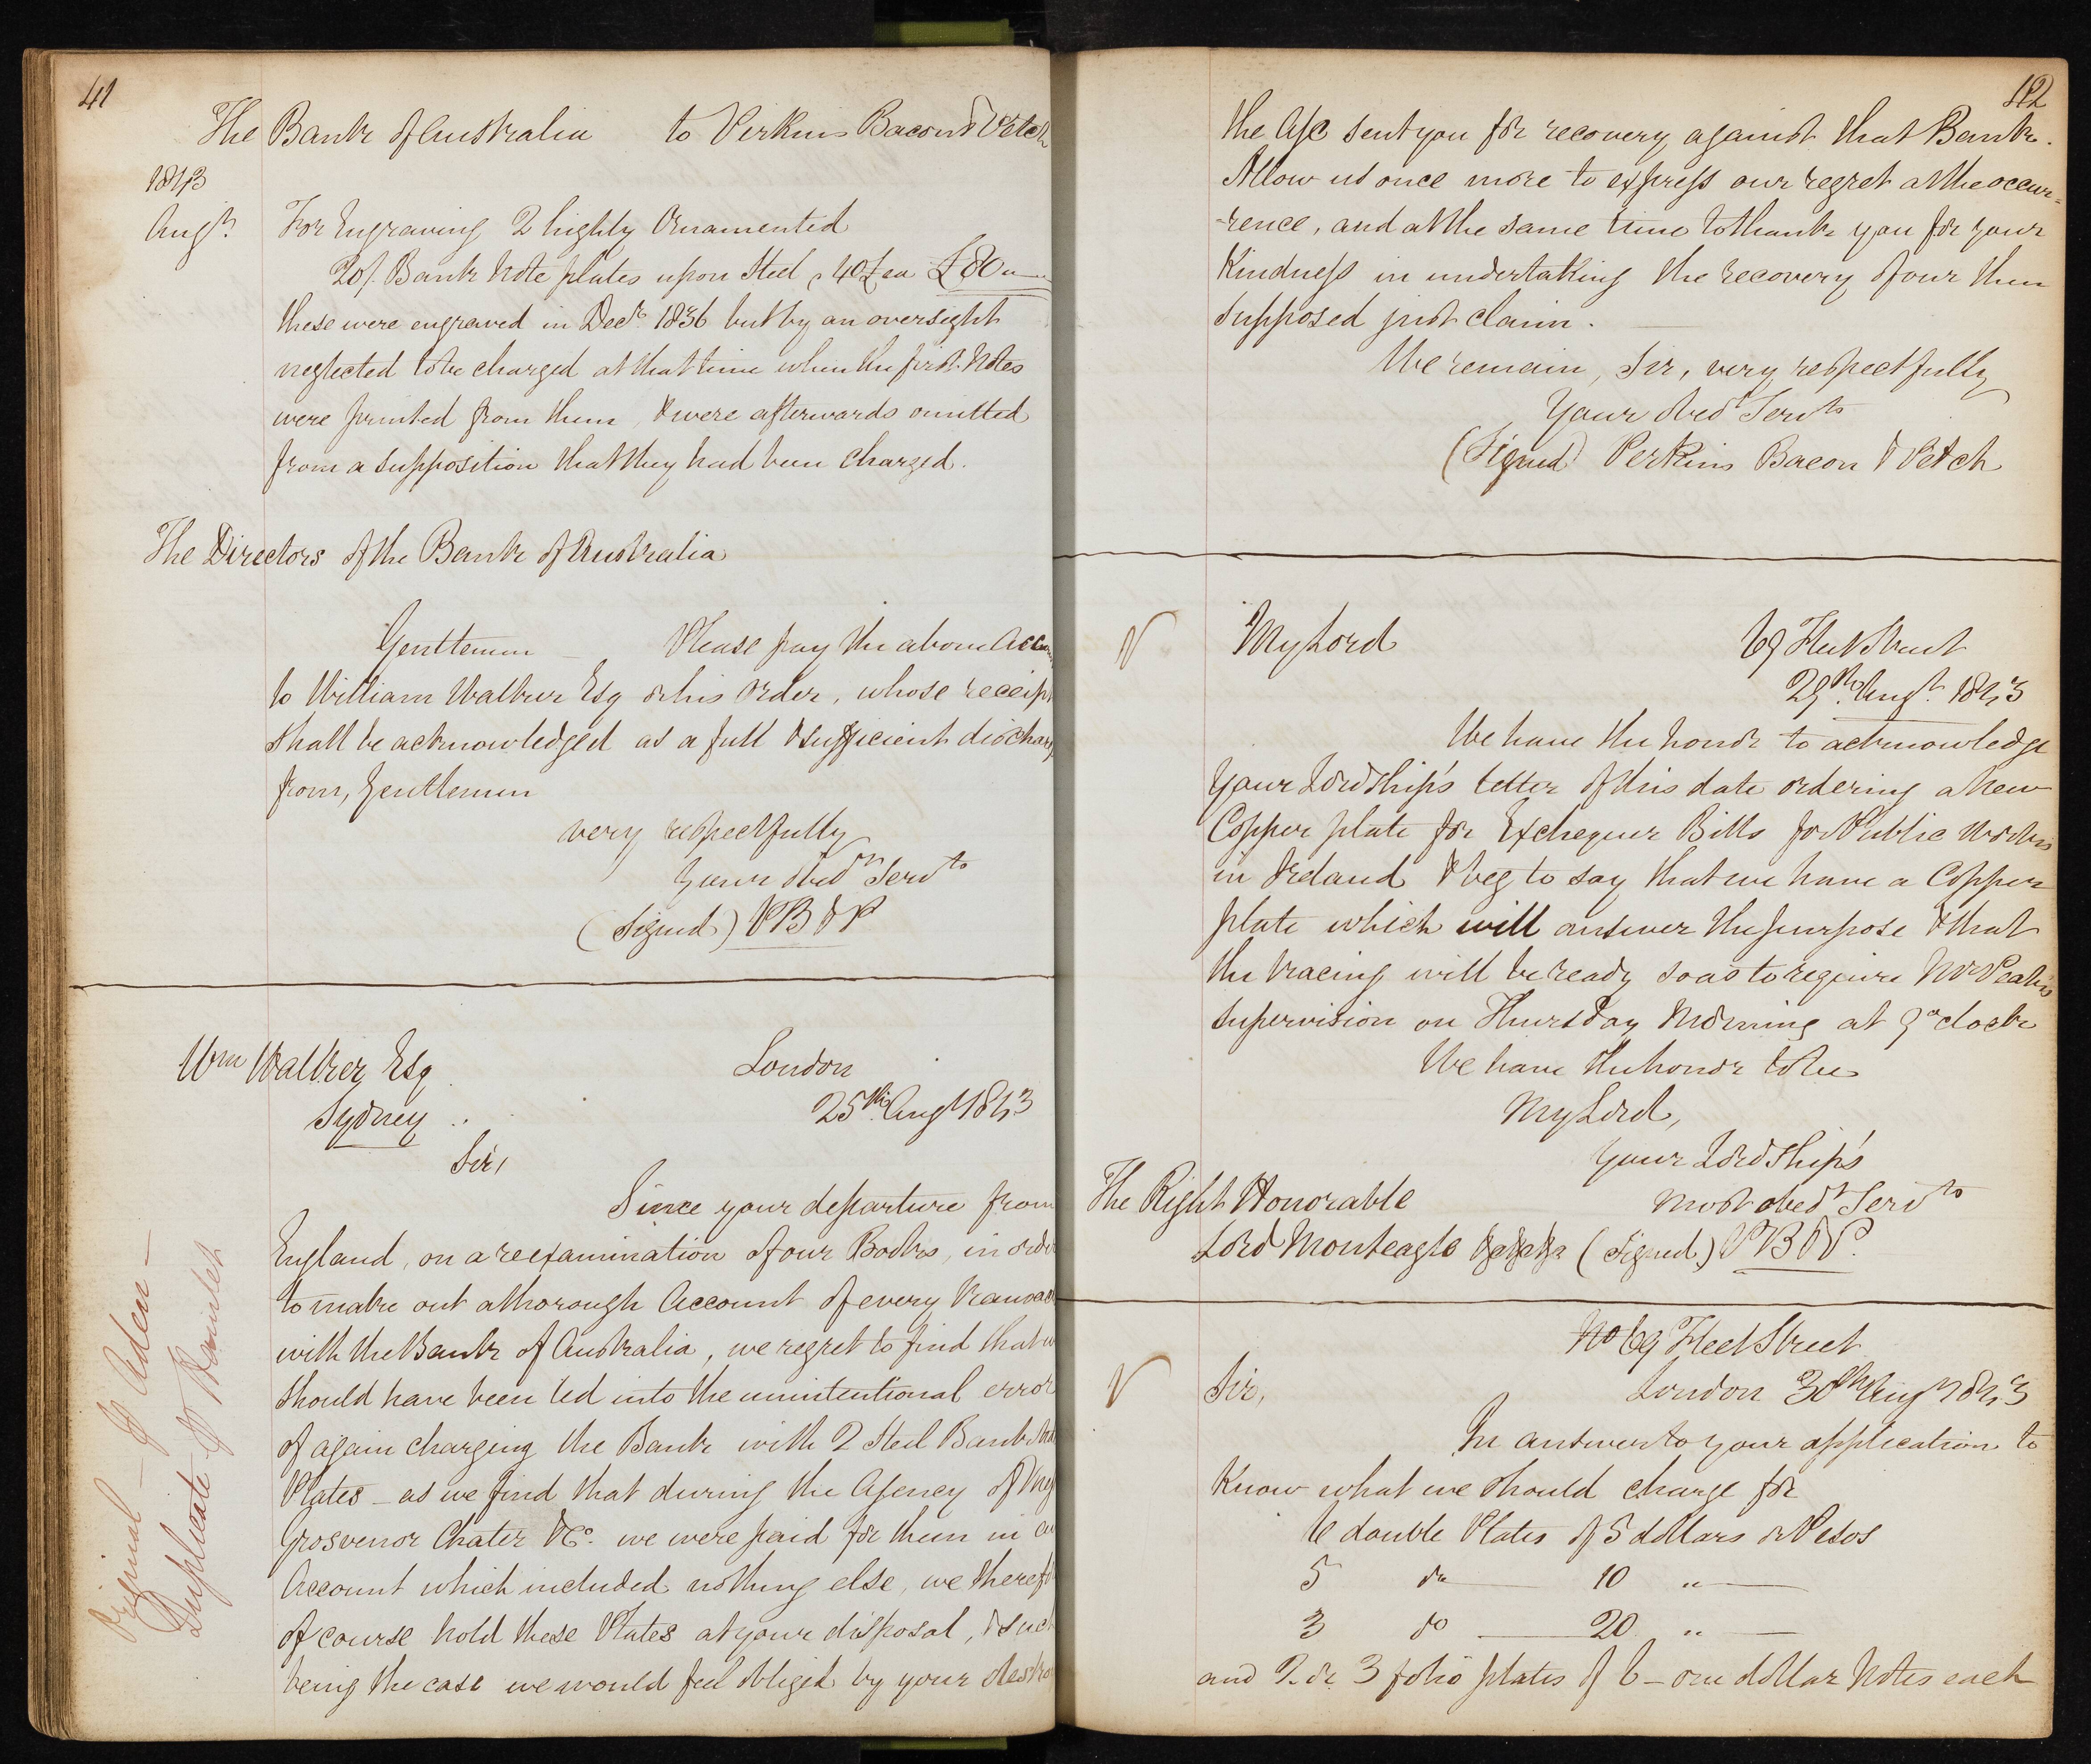 41
The Bank of Australia to Perkins Bacon & Petch
1843
Augt. For Engraving 2 highly Ornamented
20/. Bank Note plates upon Steel, 40£ ea £80 "
these were engraved in Decr. 1836 but by an oversight
neglected to be charged at that time when the first Notes
were printed from them, & were afterwards omitted
from a supposition that they had been Charged.
The Directors of the Bank of Australia
Gentlemen Please pay the above Accou
to William Walker Esq or his Order, whose receip
shall be acknowledged as a full & sufficient dischar
from, Gentlemen
very respectfully
Your obedt. Servts
(Signed) PB & P
Wm Walker Esq London
Sydney 25th. Augt 1843
Sir,
Since your departure from
England, on a reexamination of our Books, in orde
to make out a thorough Account of every Transac
with the Bank of Australia, we regret to find that w
should have been led into the unintentional error
of again charging the Bank with 2 Steel Bank
Plates – as we find that during the Agency of
Grosvenor Chater & Co. we were paid for them in an
Account which included nothing else, we therefo
of course hold these Plates at your disposal, & such
being the case we would feel obliged by your destro
Original – Aden –
Duplicate Hamlet
42
the A/c sent you for recovery against that Bank.
Allow us once more to express our regret at the occur=
-rence, and at the same time to thank you for your
Kindness in undertaking the recovery of our then
supposed just claim.
We remain, Sir, very respectfully
Your obedt Servts
(Signed) Perkins Bacon & Petch
My Lord 69 Fleet Street
29th. Augt. 1843
We have the honor to acknowledge
Your Lordship's letter of this date ordering a new
Copper plate for Exchequer Bills for Public Works
in Ireland & beg to say that we have a Copper
plate which will answer the purpose & that
the tracing will be ready so as to require Mr Peake's
supervision on Thursday Morning at 9 o'clock
We have the honor to be
My Lord,
Your Lordship's
The Right Honorable most obedt Servts
Lord Monteagle &c &c &c (Signed) PB & P.
No 69 Fleet Street
Sir, London 30th Augt 1843
In answer to your application to
Know what we should charge for
6 double Plates of 5 dollars or Pesos
5 do 10 "
3 do 20 "
and 2 or 3 folio plates of 6 – one dollar Notes each